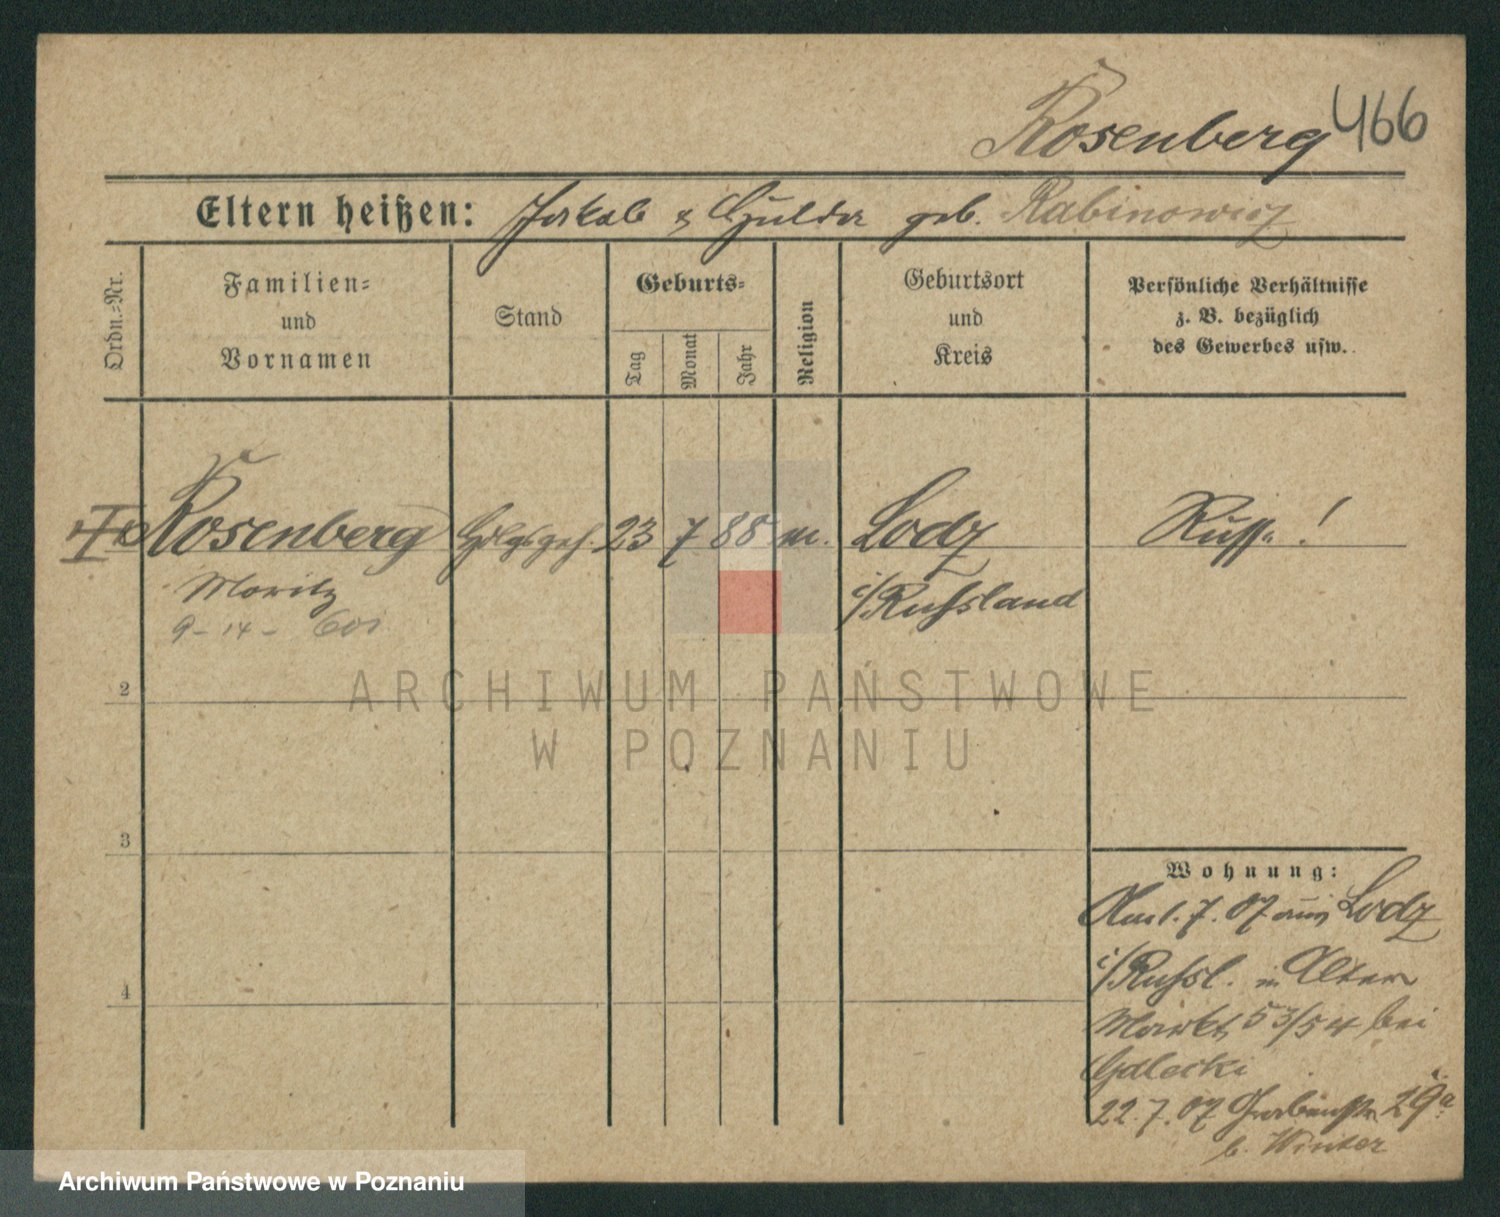 Rosenberg 466
Eltern heißen: Jakob & Hulda geb. Rabinowicz
Ordn.=Nr.
Familien=
und
Vornamen
Stand
Geburts=
Tag
Monat
Jahr
Religion
Geburtsort
und
Kreis
Persönliche Verhältnisse
z. B. bezüglich
des Gewerbes usw.
Rosenberg Hdlgsgeh. 23 7 88 m. Lodz Russe!
Moritz i/Russland
9 - 14 -
2
ARCHIWUM PAŃSTWOWE
W POZNANIU
3
4
Wohnung:
1.7.07 aus Lodz
i/Russl. in Alter
Markt 53/54 bei
22.7.07 Grabenstr 29a
b. Winter
Archiwum Państwowe w Poznaniu